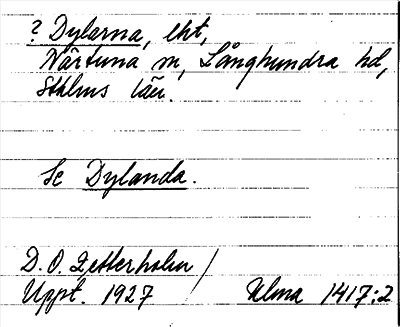 ? Dylarna, lht,
Närtuna sn, Långhundra hd,
Sthlms län.
Se Dylanda.
D. O. Zetterholm /
Uppt. 1927 Ulma 1417:2